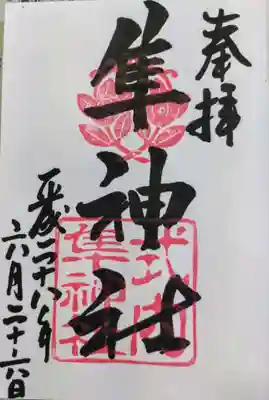 奉拝
隼神社
平成二十八年
六月二十六日
隼神社